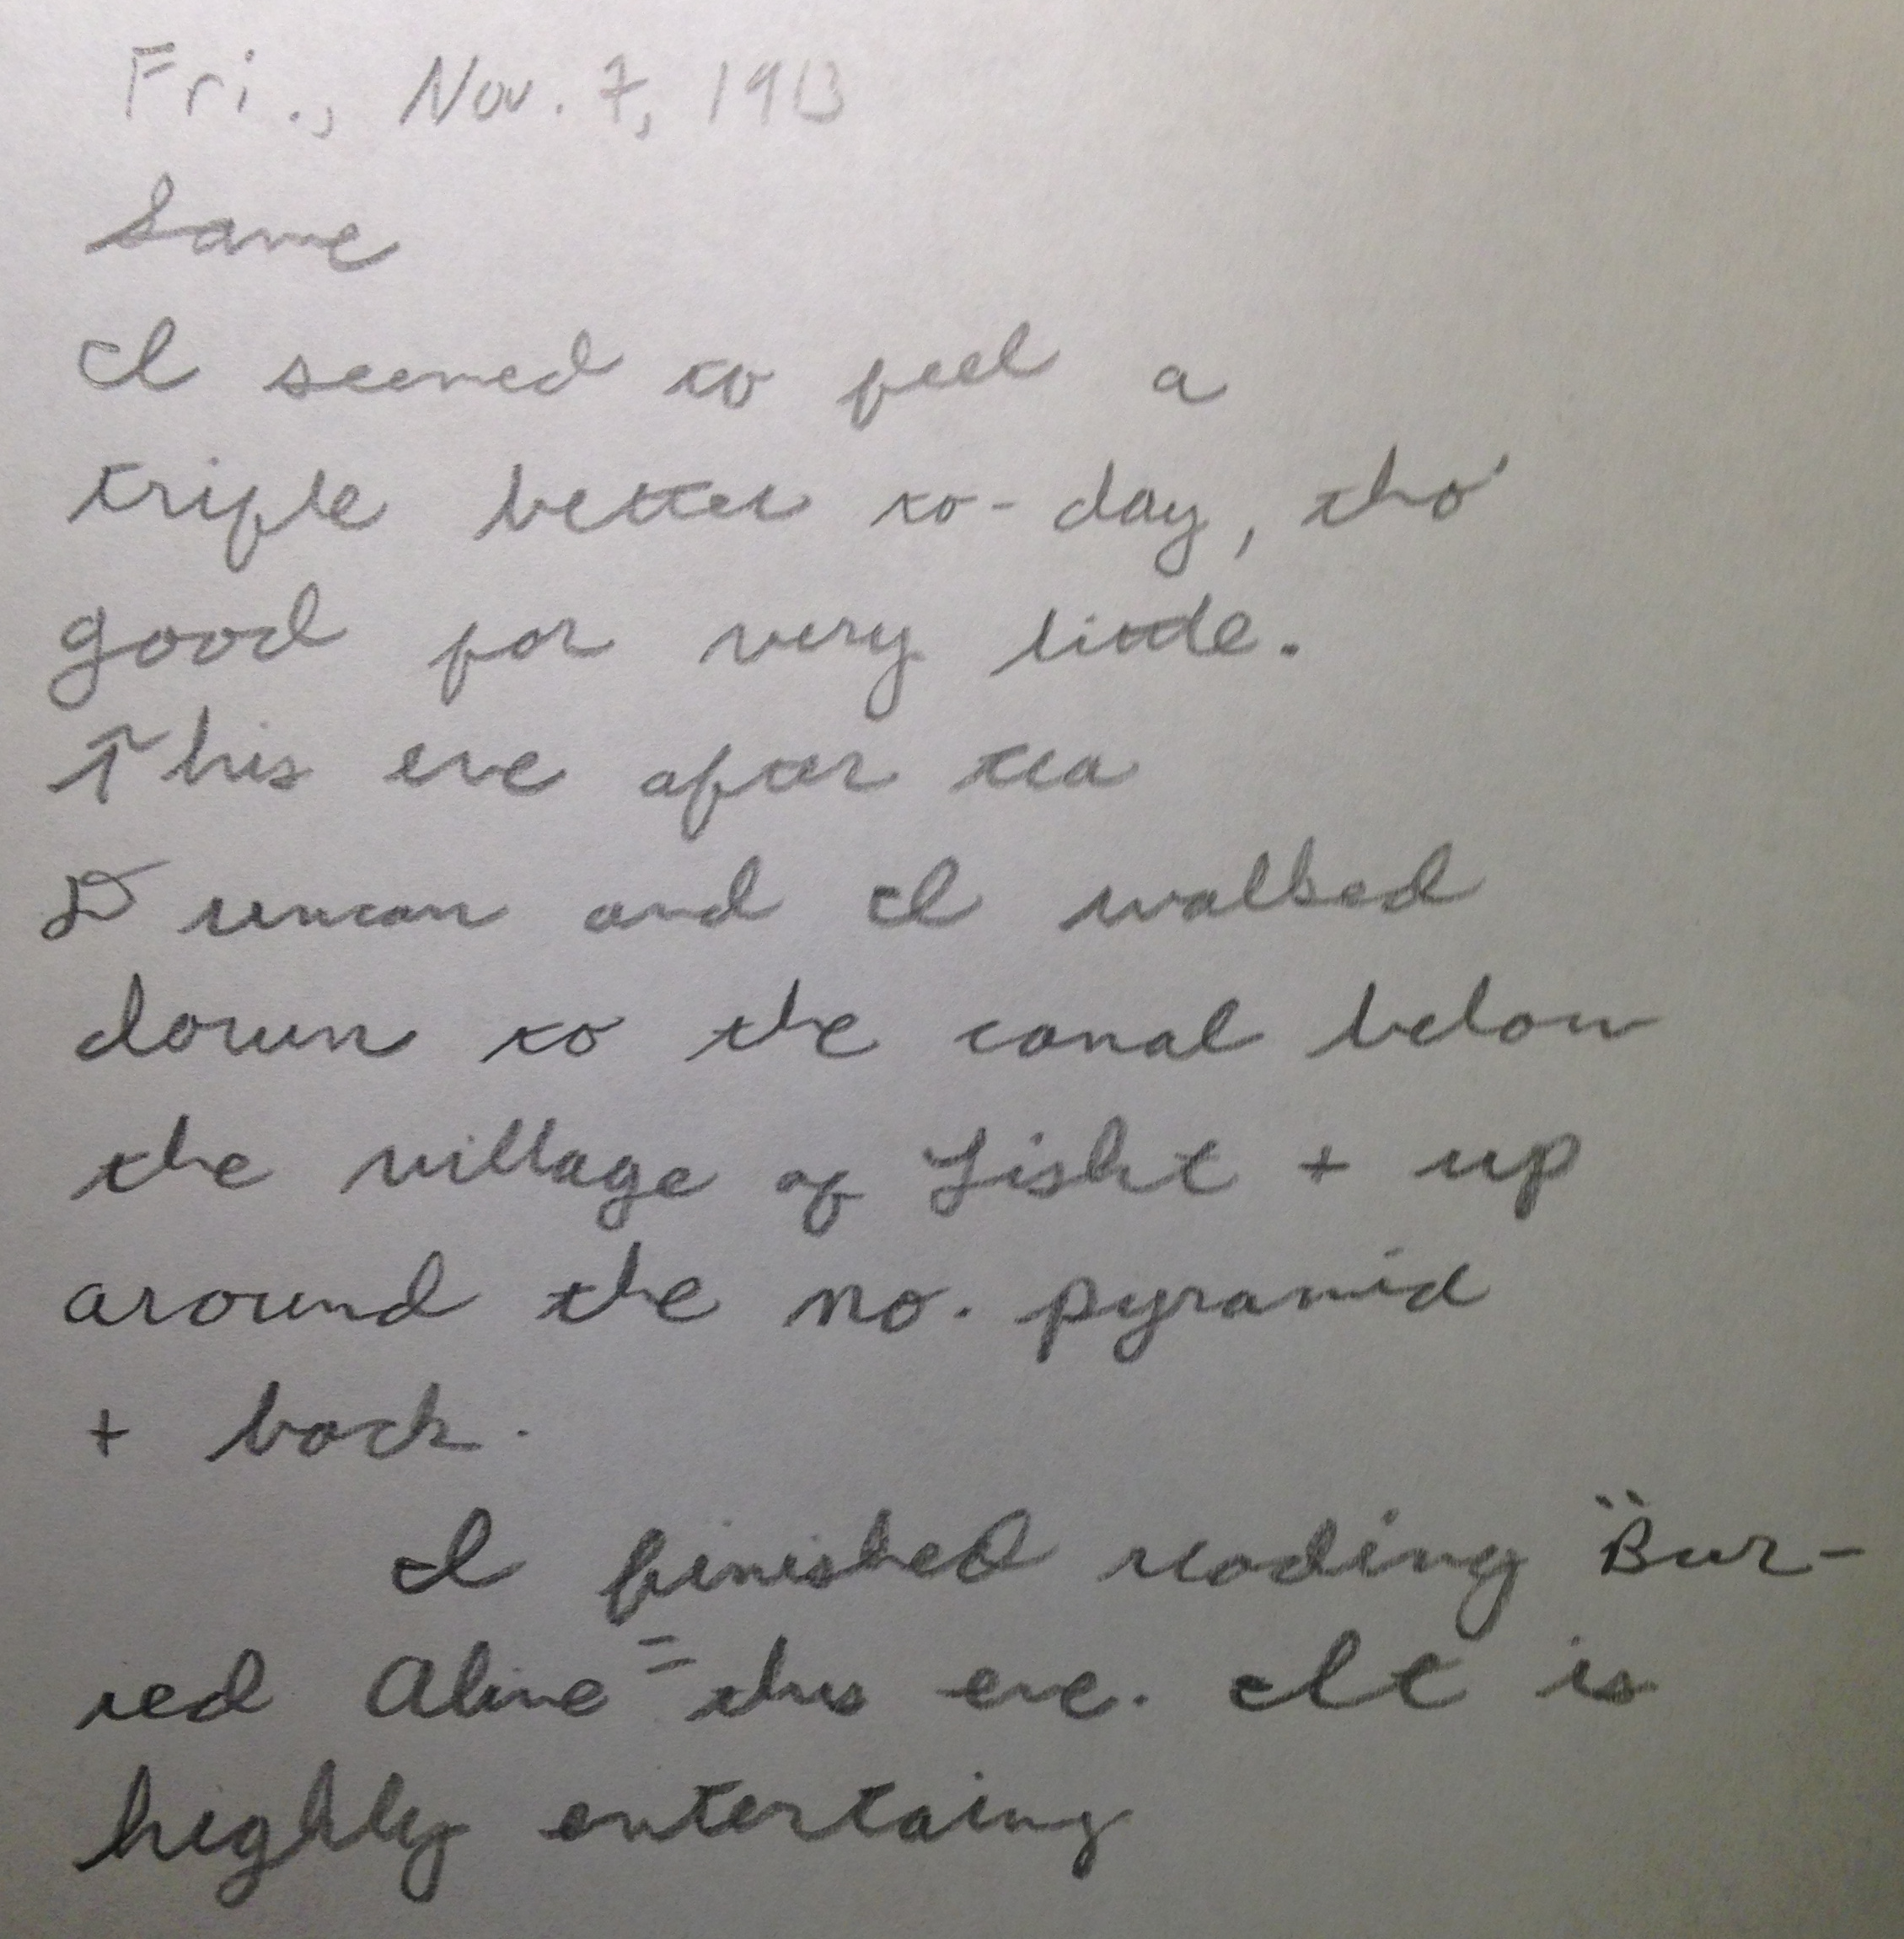 Fri., Nov. 7, 1913
Same
I seemed to feel a
triple better to-day, tho'
good for very little.
This eve after tea
Duncan and I walked
down to the canal below
the village of Lisht + up
around the no. pyramid
+ back.
I finished reading "Bur-
ied Alive" this eve. It is
highly entertaing